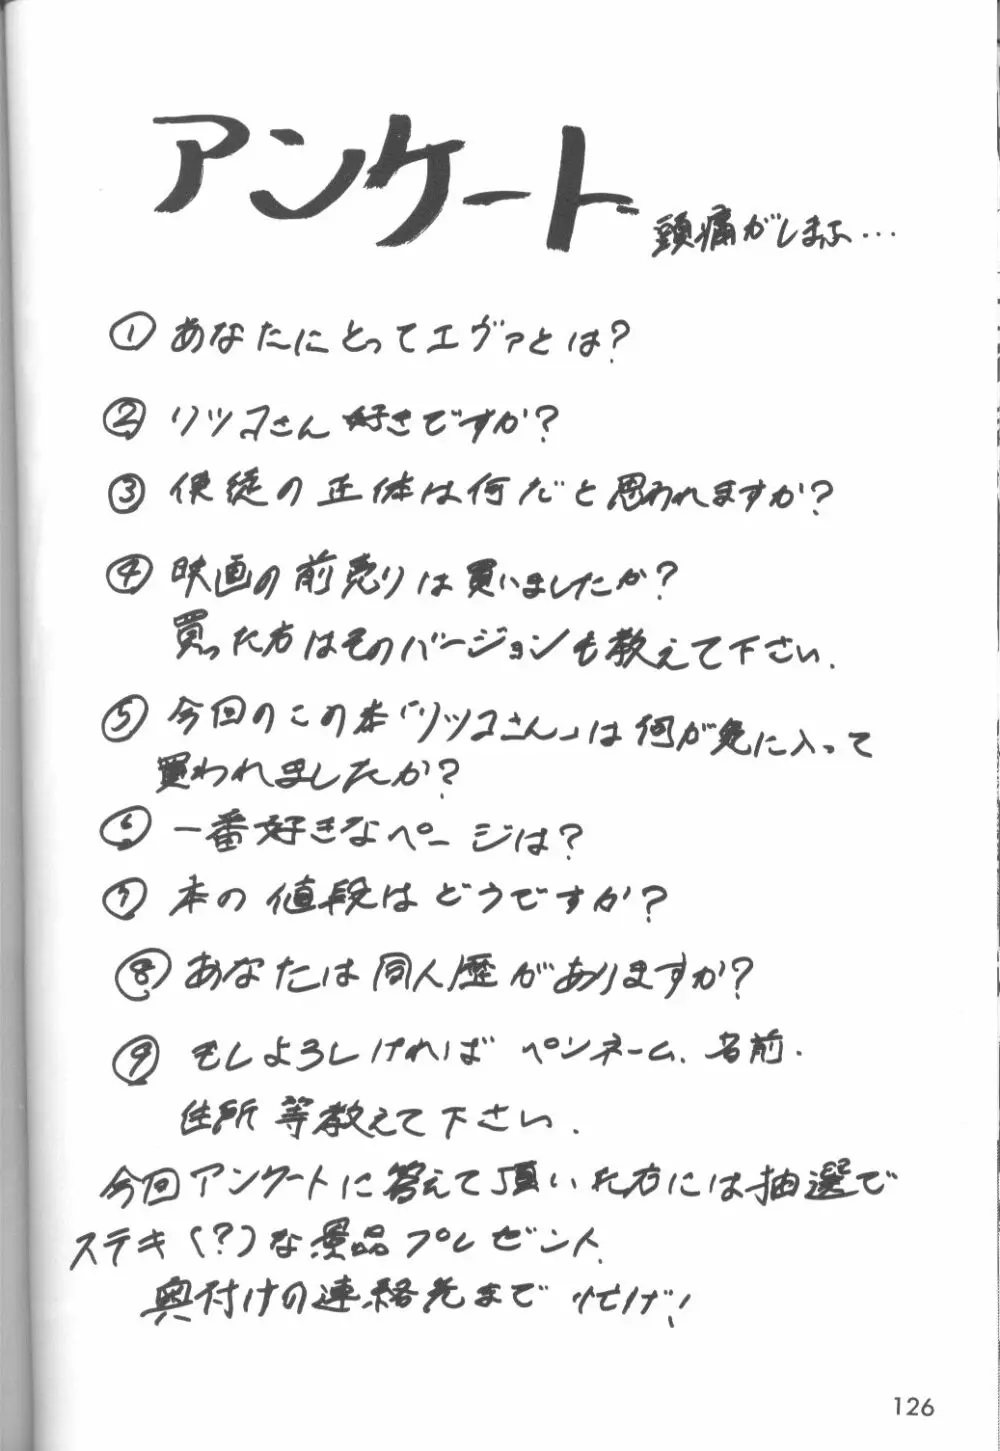 アンケート
頭痛がしまふ…
① あなたにとってエヴァとは?
② リツコさん 好きですか?
③ 使徒の正体は何だと思われますか?
④ 映画の前売りは買いましたか?
買った方はそのバージョンも教えて下さい.
⑤ 今回のこの本「リツコさん」は何が気に入って
買われましたか?
⑥ 一番好きなページは?
⑦ 本の値段はどうですか?
⑧ あなたは同人歴がありますか?
⑨ もしよろしければ ペンネーム、名前.
住所等教えて下さい.
今回アンケートに答えて頂いた方には抽選で
ステキ(?)な景品プレゼント.
奥付けの連絡先まで
126